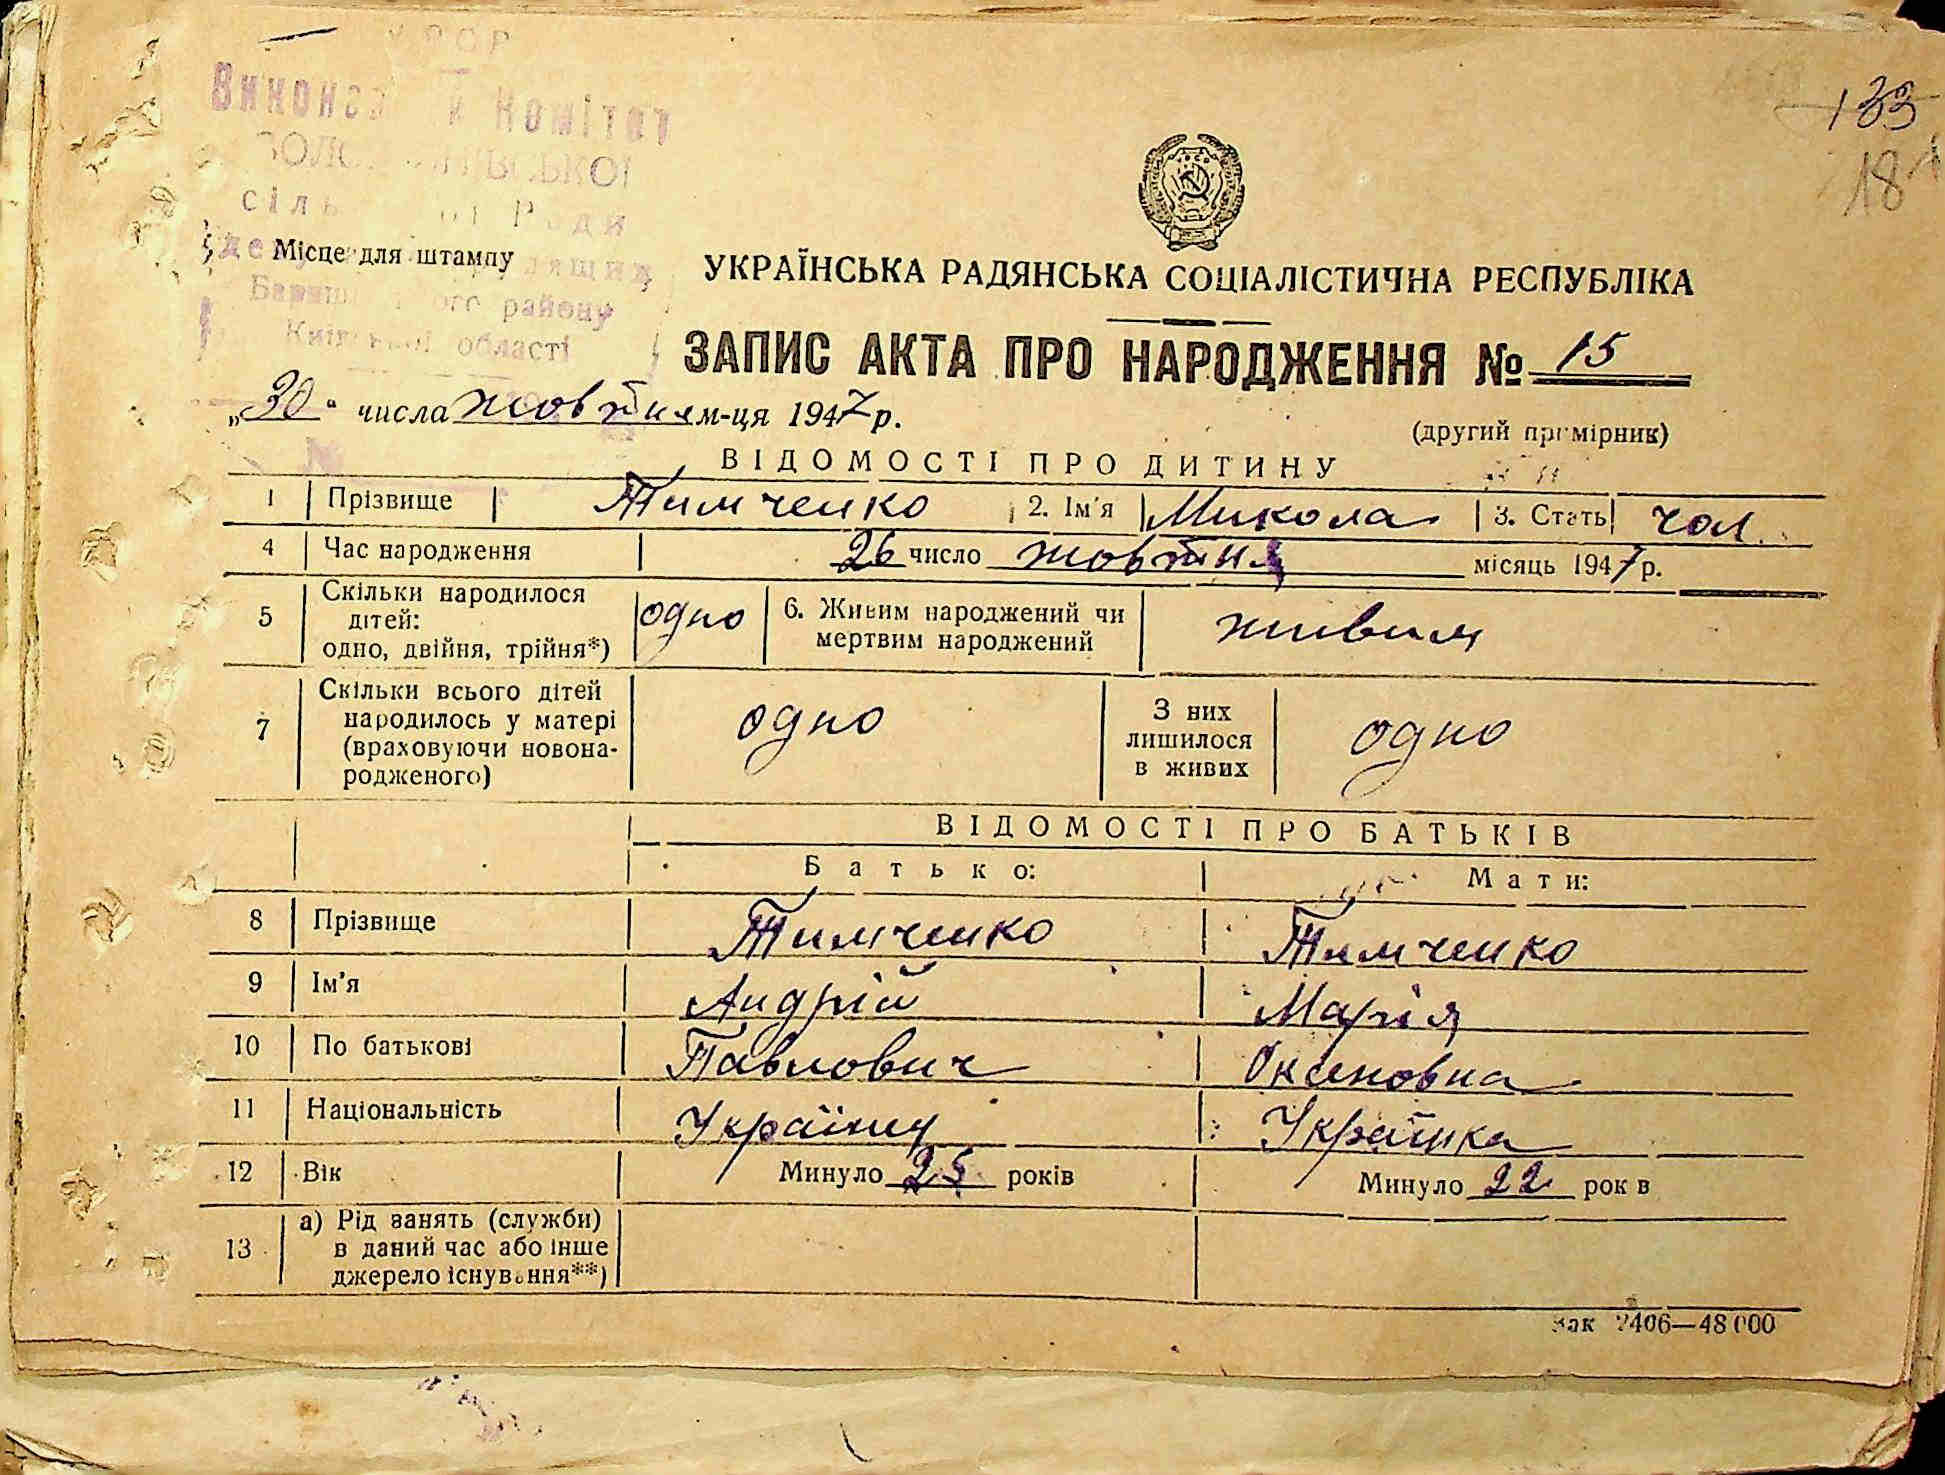 УРСР
Виконавчий Комітет
сільської Ради
Місце для штампу
району
Київської області
133
181
УКРАЇНСЬКА РАДЯНСЬКА СОЦІАЛІСТИЧНА РЕСПУБЛІКА
ЗАПИС АКТА ПРО НАРОДЖЕННЯ № 15
„30" числа жовтня м-ця 1947 р.
(другий примірник)
ВІДОМОСТІ ПРО ДИТИНУ
1 Прізвище Тимченко 2. Ім'я Микола 3. Стать чол.
4 Час народження 26 число жовтня місяць 1947 р.
5 Скільки народилося дітей: одно, двійня, трійня*) одно 6. Живим народжений чи мертвим народжений живим
7 Скільки всього дітей народилось у матері (враховуючи новонародженого) одно З них лишилося в живих одно
ВІДОМОСТІ ПРО БАТЬКІВ
Батько: Мати:
8 Прізвище Тимченко Тимченко
9 Ім'я Андрій Марія
10 По батькові Павлович
11 Національність Українец Українка
12 Вік Минуло 25 років Минуло 22 років
13 а) Рід занять (служби) в даний час або інше джерело існування**)
Зак 2406—48 000